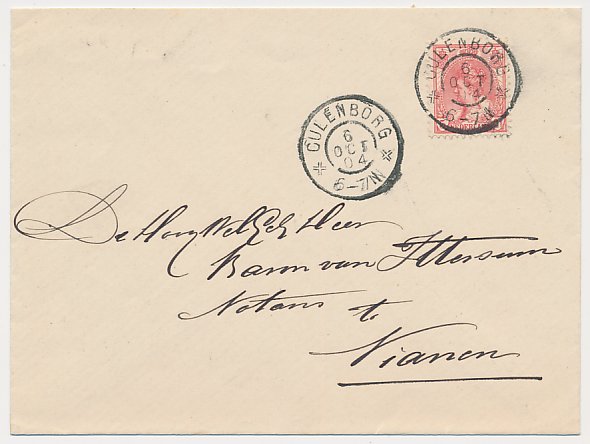 CULENBORG
6
OCT
04
6-7N
CULENBORG
6
OCT
04
6-7N
De Hoog WelGeb Heer
Baron van Ittersum
Notaris te
Vianen